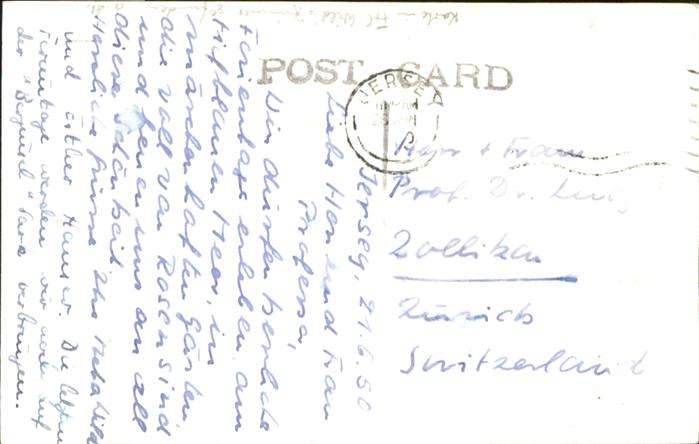 POST CARD
JERSEY
Jersey, 21.6.50
Liebe Herr und Frau
Professor,
Wir dürfen herrliche
Ferientage erleben am
tiefblauen Meer, in
märchenhaften Gärten,
die voll von Rosen sind
und freuen uns an all
dieser Schönheit.
Herzliche Grüsse Ihre Mathilde
und Esther Hauser. Die letzten
Ferientage werden wir noch auf
der "Insel" Sark verbringen.
Herr + Frau
Prof. Dr.
Zollikon
Zürich
Switzerland